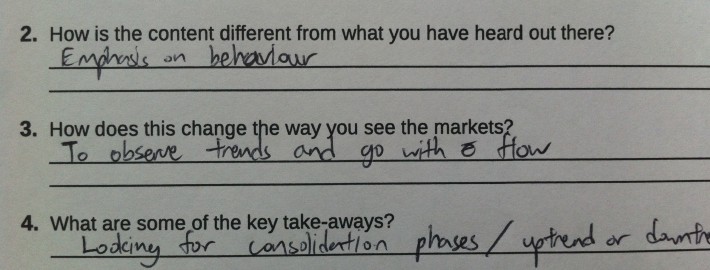 2. How is the content different from what you have heard out there?
Emphasis on behaviour
3. How does this change the way you see the markets?
To observe trends and go with flow
4. What are some of the key take-aways?
Looking for consolidation phases / uptrend or